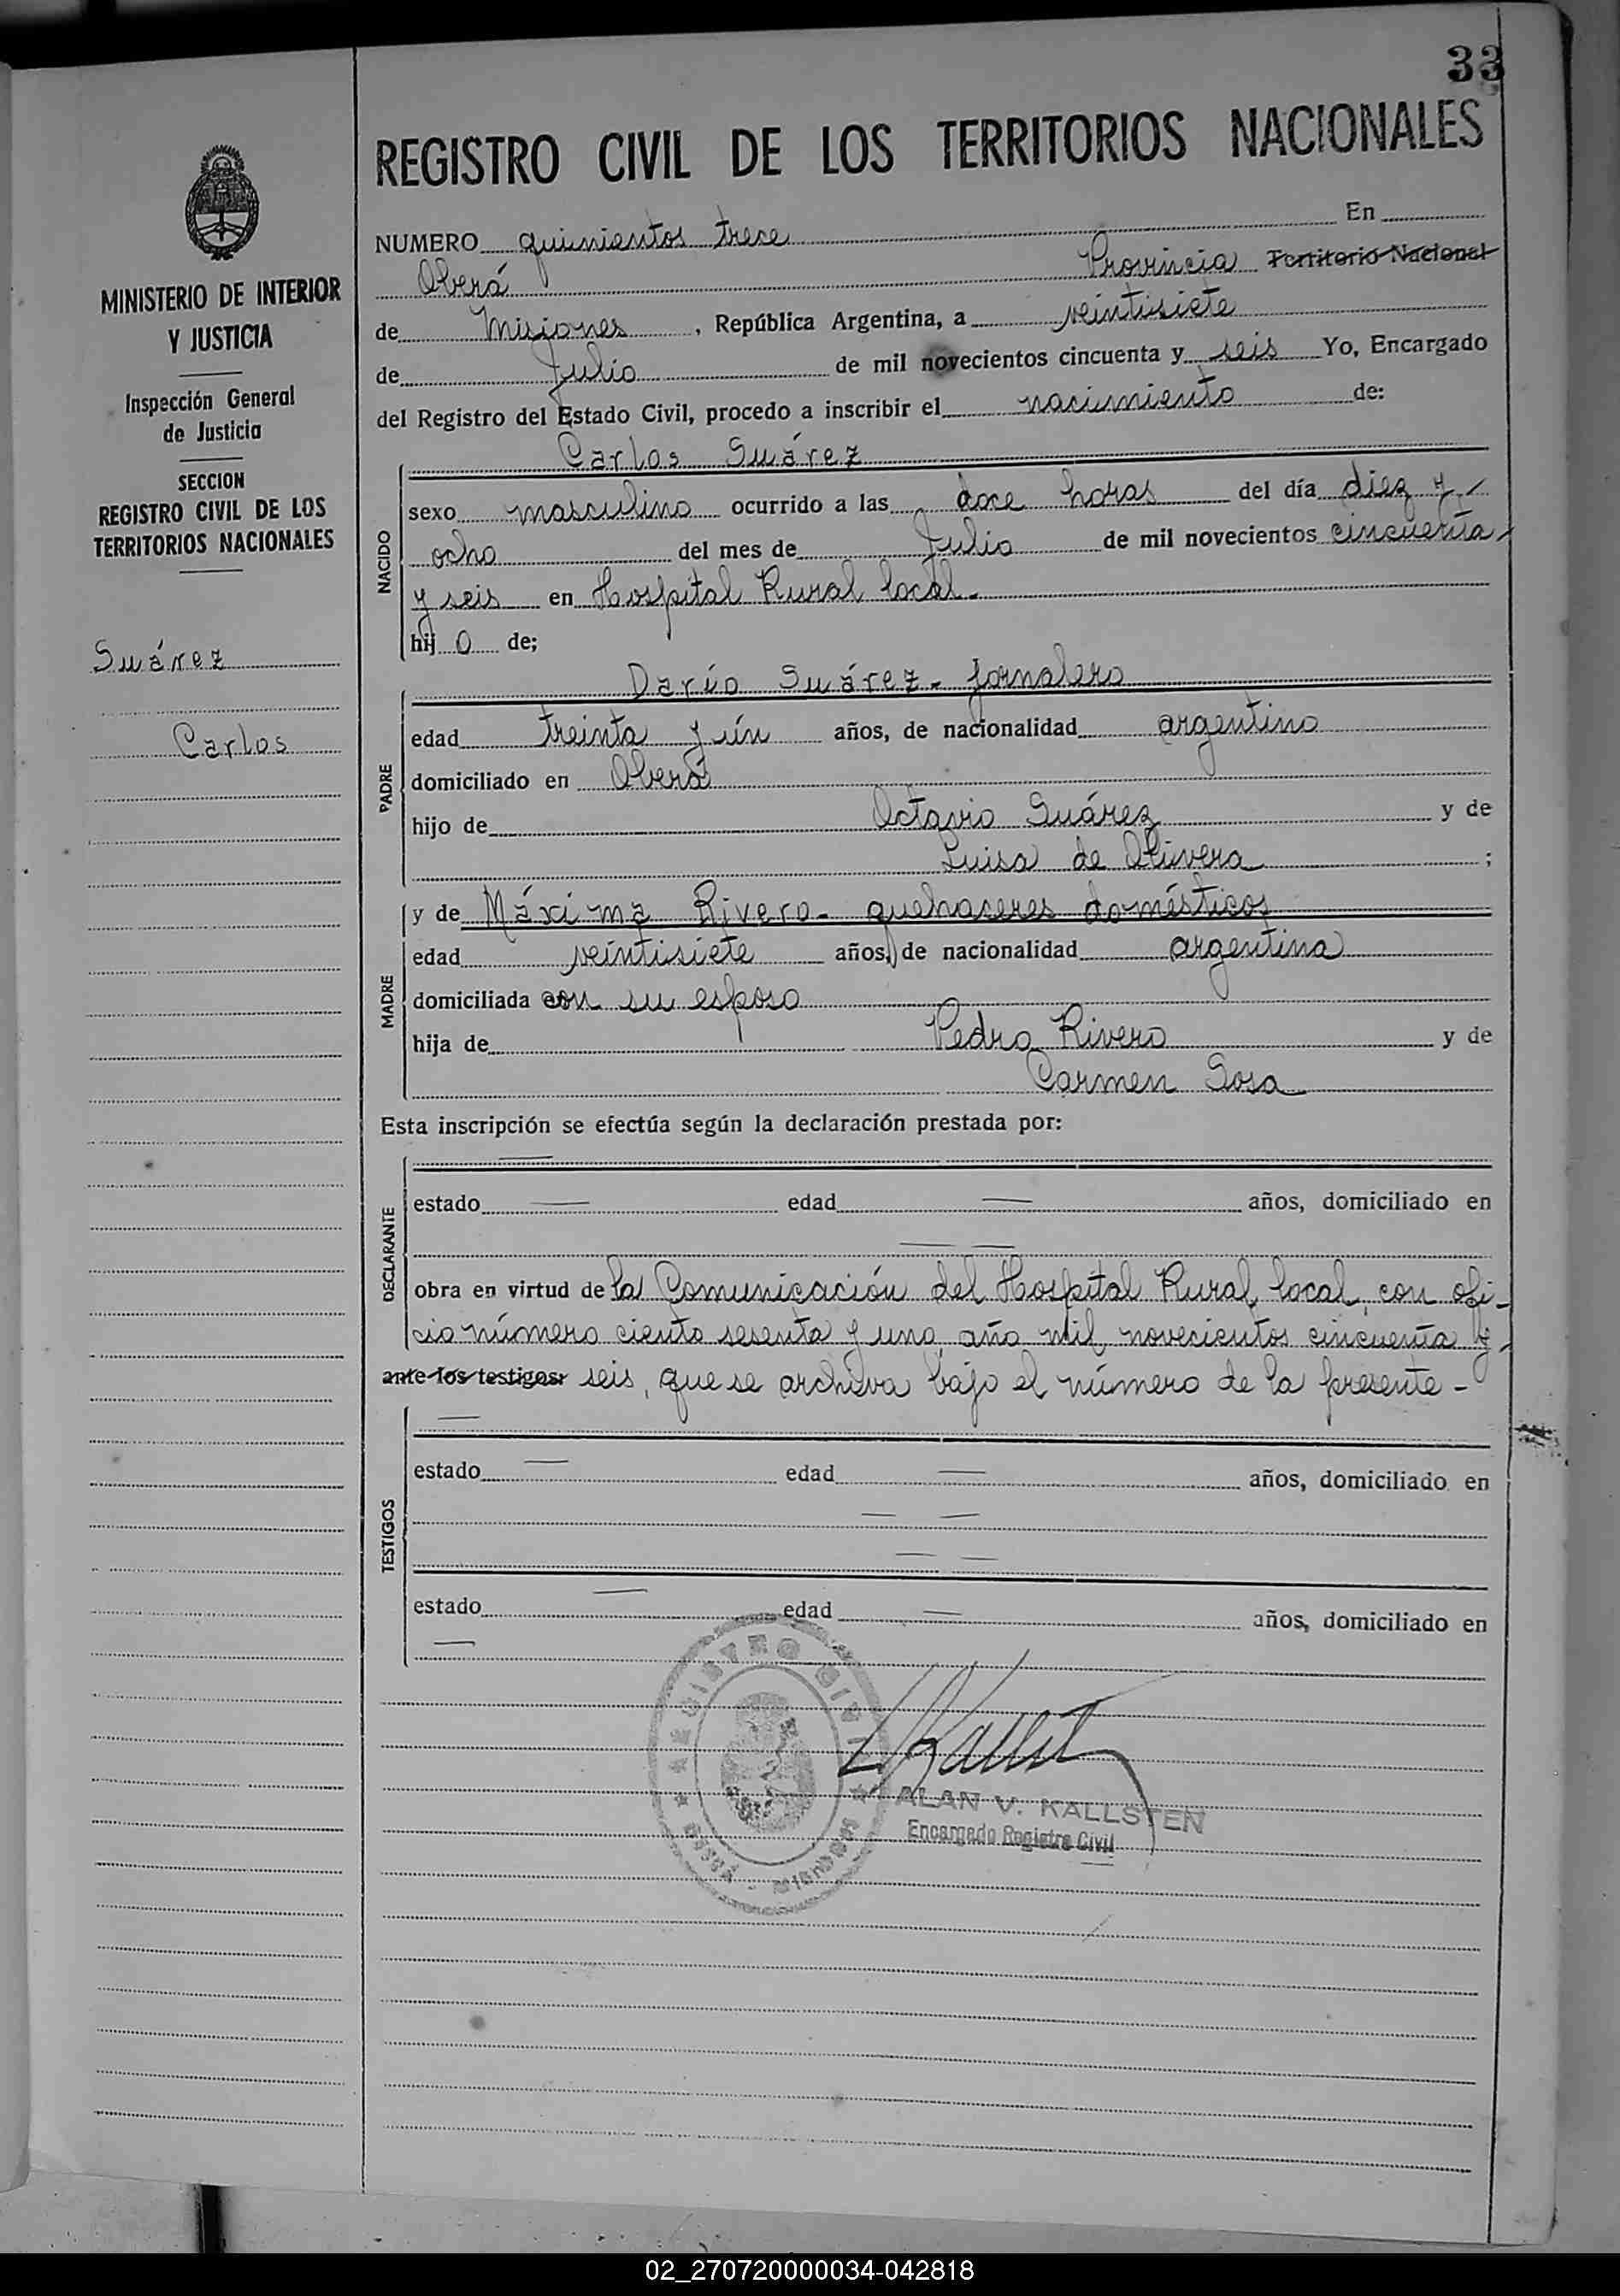 33
REGISTRO CIVIL DE LOS TERRITORIOS NACIONALES
MINISTERIO DE INTERIOR
Y JUSTICIA
Inspección General
de Justicia
SECCION
REGISTRO CIVIL DE LOS
TERRITORIOS NACIONALES
Suárez
Carlos
NUMERO quinientos trece En
Oberá Provincia Territorio Nacional
de Misiones, República Argentina, a veintisiete
de Julio de mil novecientos cincuenta y seis Yo, Encargado
del Registro del Estado Civil, procedo a inscribir el nacimiento de:
NACIDO
Carlos Suárez
sexo masculino ocurrido a las doce horas del día diez y
ocho del mes de Julio de mil novecientos cincuenta
y seis en Hospital Rural local.
hijo de;
PADRE
Darío Suárez - jornalero
edad treinta y ún años, de nacionalidad argentino
domiciliado en Oberá
hijo de Octavio Suárez y de
Luisa de Olivera ;
MADRE
y de Máxima Rivero - quehaceres domésticos
edad veintisiete años, de nacionalidad argentina
domiciliada con su esposo
hija de Pedro Rivero y de
Carmen Sosa
Esta inscripción se efectúa según la declaración prestada por:
DECLARANTE
estado — edad — años, domiciliado en
obra en virtud de la Comunicación del Hospital Rural local, con ofi-
cio número ciento sesenta y uno, año mil novecientos cincuenta y
ante los testigos: seis, que se archiva bajo el número de la presente -
TESTIGOS
estado — edad — años, domiciliado en
estado — edad — años, domiciliado en
REGISTRO CIVIL
OBERÁ - MISIONES
ALAN V. KALLSTEN
Encargado Registro Civil
02_270720000034-042818